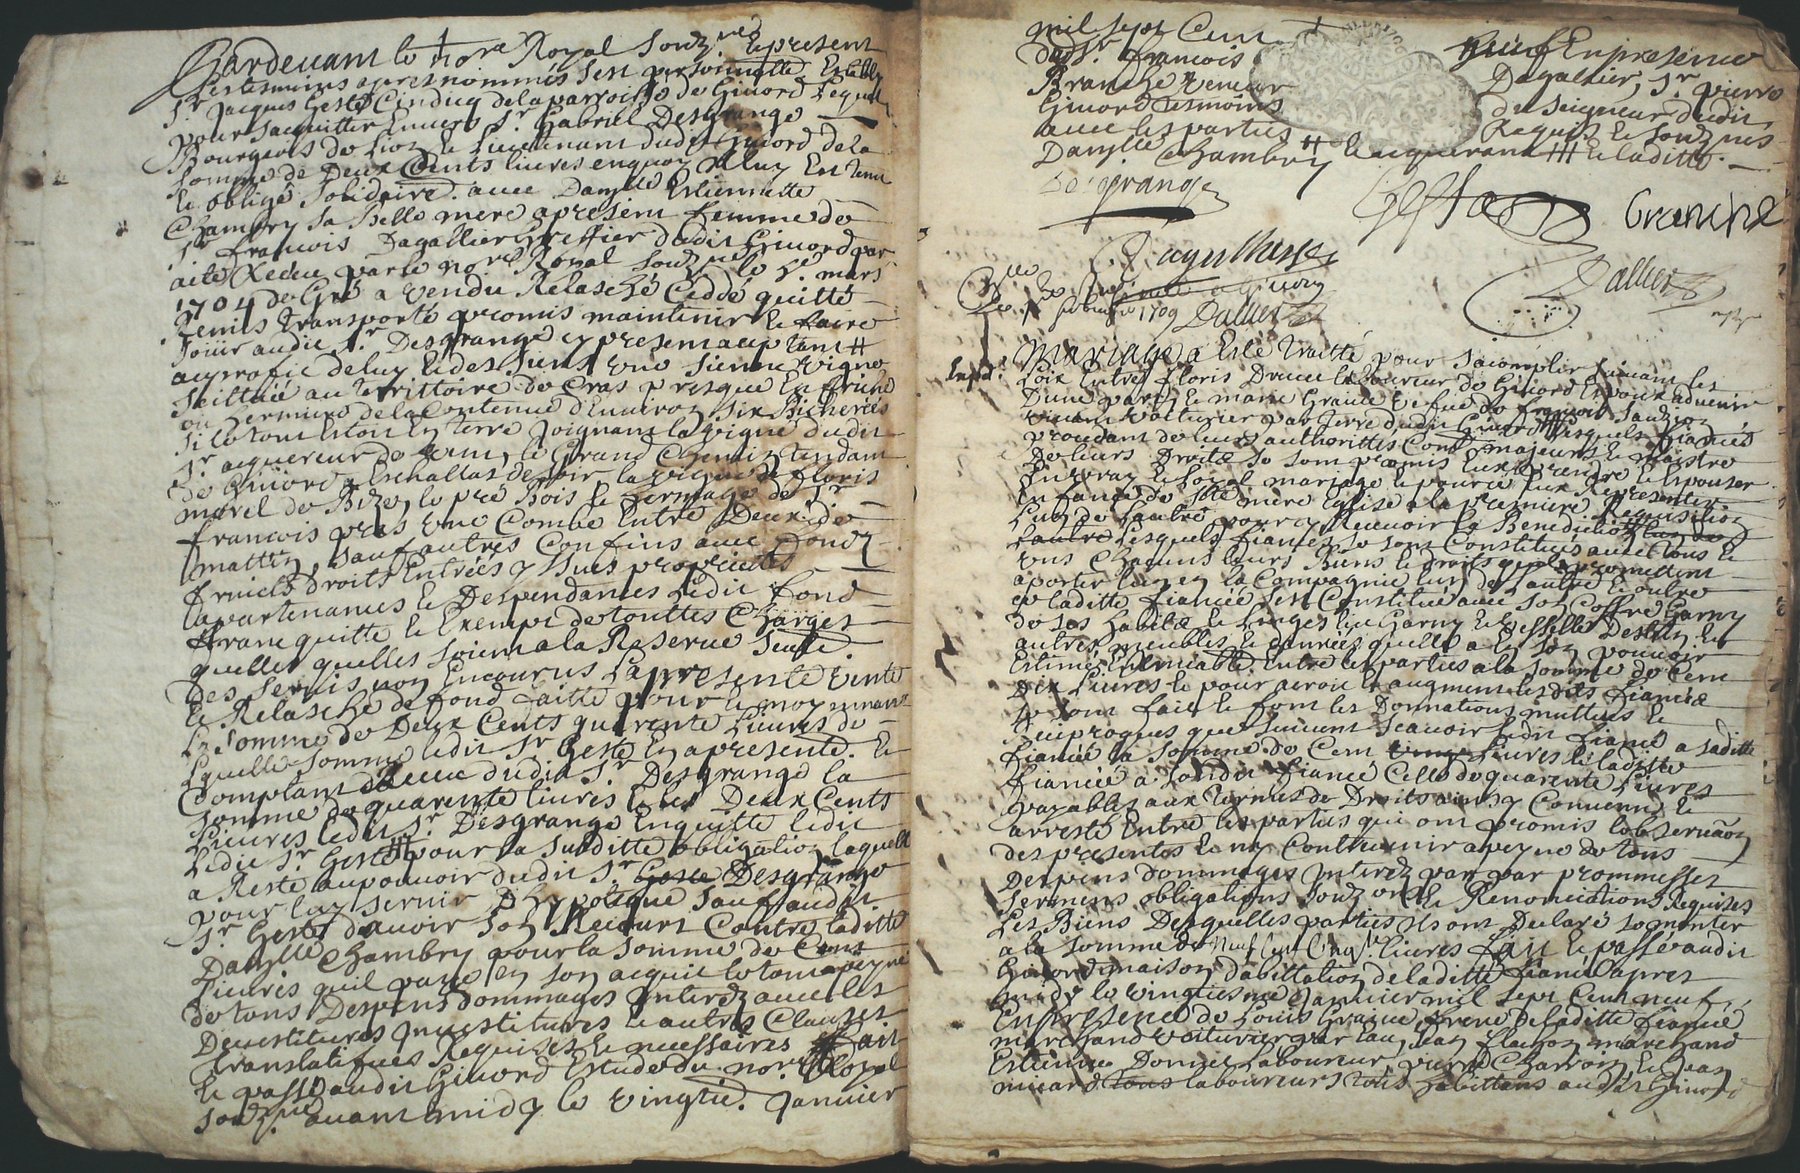 Pardevant le no.re Royal souz.né le present
Et tesmoins apres nommés s'est personnelle. Estably
S.r Jacques Geste Cinducq de la parroisse de Givord Lequel
pour sacquitter Envers S.r Gabriel Desgrange
Bourgeois de Lion le Lieutenant dudit Givord de la
somme de Deux Cents livres enquoy Il luy Est tenu
le obligé solidaire. avec Danylle Estiennette
Chambry sa Belle mere apresent femme de
S.r francois Dagallier Greffier dudit Givord par
acte Receu par le no.re Royal souz.né le 5.e mars
1704 de Gré a vendu Relasché Ceddé quitté
Remis transporté promis maintenir le faire
Jouir audit S.r Desgrange cy present acceptant #
au proffit de luy le des siens une sienne vigne
scittuée au territtoire de Cras presque En friche
ou hermine de la Contenue d'Environ six Bicherées
si le tout Estoit En terre Joignant la vigne dudit
S.r acquereur de vent, le Grand Chemin tendant
de Givord a Eschallas de soir la vigne de floris
morel de Bize, le pré Bois le hermage de S.r
francois pras une Combe Entre Deux de
mattin, sauf autres Confins avec fondz
fruicts Droits Entrées y sues proprietés
apartenances le Despendances Ledit fond
franc quitte le Exempt de touttes Charges
quelles quelles soient a la Reserve seulle.
des servis non Encourus La presente vente
le Relasché de fond faitte pour le moyennant
La somme de Deux Cents quarente Livres de
Lquelle somme ledit S.r Geste En a presente. le
Comptant Receu dudit S.r Desgrange la
somme de quarente livres le les Deux Cents
Livres ledit S.r Desgrange Enquitte ledit
Ledit S.r Geste # pour la susditte obligation laquelle
a Resté au pouvoir dudit S.r Geste Desgrange
pour luy servir Dhypoteque sauf audit
S.r Geste davoir son Recours Contre laditte
Danylle Chambry pour la somme de Cent
Livres quil paye En son acquit le tout a peyne
de tous Despens dommages Interez avec les
Devestitures Investitures le autres Clauses
translatifves Requises le necessaires Fait
le passé audit Givord Estude du no.re Royal
souz.né avant midy le vingtie. Janvier
mil sept Cent neuf En presence
de S.r francois Dagallier, S.r pierre
Branche Veneur du seigneur dudit
Givord tesmoins Requis le souz.nés
avec les parties
Danylle Chambry # lacquerant # le laditte.
Desgrange Geste Branche
Dallier
1709 Dallier
Exped.
Mariage a Esté traitté pour saccomplir suivant les
Loix Entre floris Drevet Laboureur de Givord Espoux advenir
D'une part, le marie Graine vefve de francois Jandin
vivant voiturier par terre dudit Givord lesquels fiancés
procedant de leurs authorittés Comme majeurs le maistre
de leurs Droits se sont promis Eux prendre le Espouser
En vray le loyal mariage le pour ce Eux Representer
En face de S.te mere Eglise a la premiere Requisition
Lun de lautre pour y Recevoir la Benediction
Lautre Lesquels fiancés se sont Constitués avec tous le
uns Chacuns leurs Biens le droits quils promettent
aporter Lun En la Compagnie lun de lautre le outre
ce laditte fiancée sest Constitué avec son Coffre Garny
de ses habits le Linges lit Garny le vesselle Destin le
autres meubles le danrées quelle a En son pouvoir
Estimés Enemiable. Entre les parties a la somme de Cent
Dix Livres le pour acroit le augment lesdits fiancés
se sont fait le font les Donnations mutties le
Reciproques que suivent scavoir ledit fiancé a saditte
fiancée la somme de Cent vingt Livres le laditte
fiancée a sondit fiancé Celle de quarente Livres
payables aux termes de Droits ainsy Convenu le
arresté Entre les parties qui ont promis lobservaon
des presentes le ny Contrevenir a peyne de tous
Despens dommages Interez par par prommesses
sermens obligations souz on le Renonciations Requises
Les Biens Desquelles parties Ils ont Declaré se monter
a la somme de Neuf Cent Cinq.te livres fait le passé audit
Givord maison dabittation de laditte fiancée apres
midy le vingtiesme Janvier mil sept Cent neuf,
En presence de Louis Graine frere de laditte fiancée
marchand voiturier par Eau, Jean flachon marchand
Estienne Donzel Laboureur, pierre Charvin, le Jean
micard tous laboureurs tous habittans audit Givord